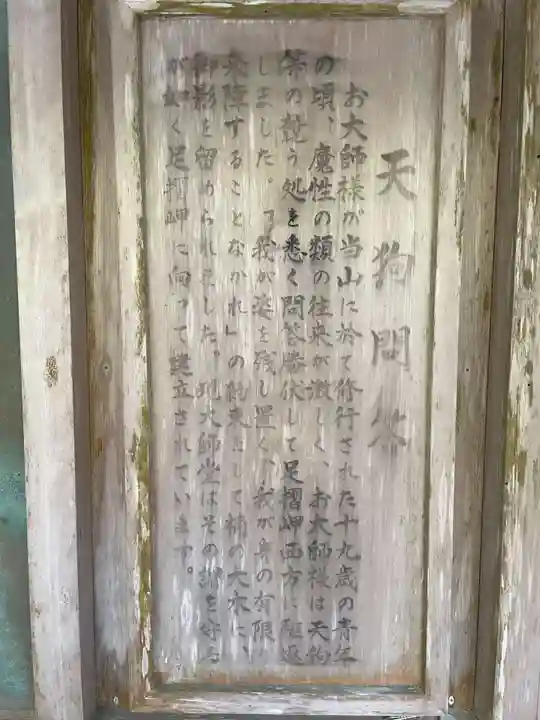 天狗問答
お大師様が当山に於て修行された十九歳の青年
の頃、魔性の類の往来が激しく、お大師様は天狗
等の聲う処を悉く問答勝伏して足摺岬西方に駆返
しました。「我が姿を残し置く、我が身の有限
来障することなかれ」の約束として楠の大木に、
御影を留められました。現大師堂はその謂を守る
が如く足摺岬に向って建立されています。